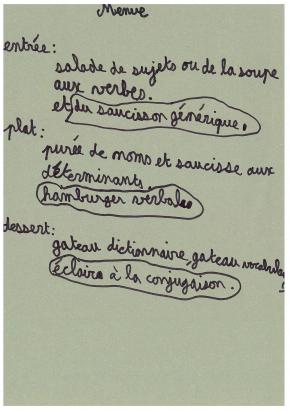 Menue
entrée:
salade de sujets ou de la soupe
aux verbes.
et du saucisson générique.
plat:
purée de noms et saucisse aux
déterminants.
hamburger verbale
dessert:
gateau dictionnaire, gateau vocabulaire
éclaire à la conjugaison.